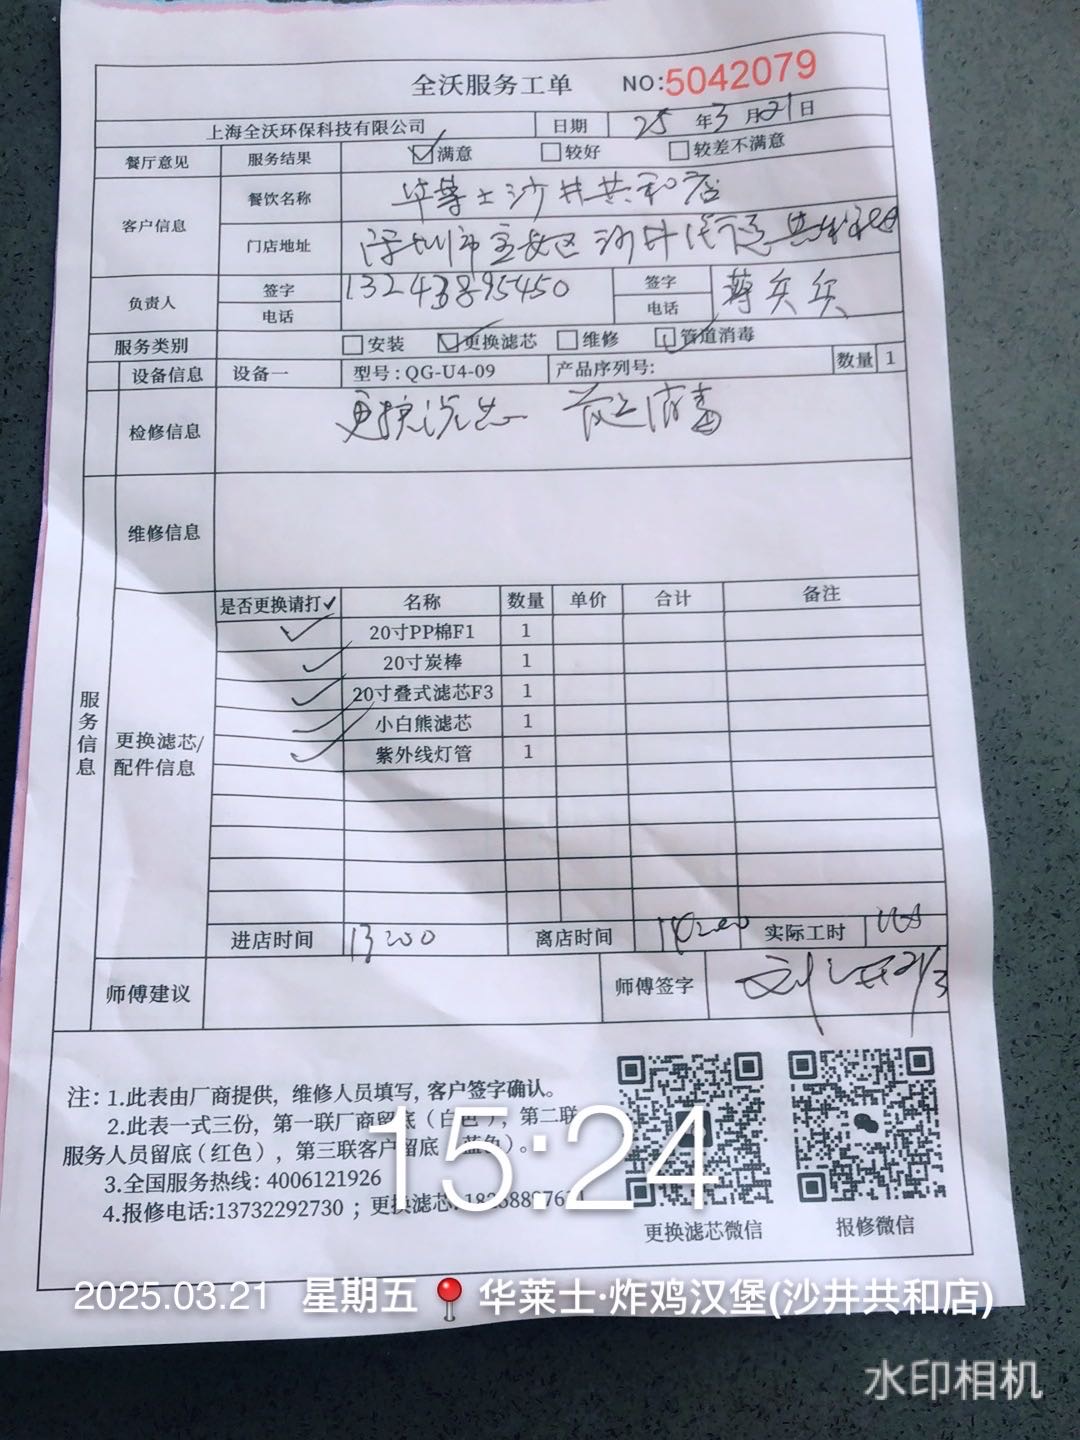 全沃服务工单 NO:5042079
上海全沃环保科技有限公司 日期 25 年 3 月 21 日
餐厅意见 服务结果 ☑满意 □较好 □较差不满意
客户信息 餐饮名称 华莱士沙井共和店
门店地址 深圳市宝安区沙井街道共和
负责人 签字 电话 13243895450 签字 电话
服务类别 □安装 ☑更换滤芯 □维修 ☑管道消毒
设备信息 设备一 型号:QG-U4-09 产品序列号: 数量 1
检修信息 更换滤芯 管道消毒
维修信息
服务信息
更换滤芯/配件信息
是否更换请打✓ 名称 数量 单价 合计 备注
✓ 20寸PP棉F1 1
✓ 20寸炭棒 1
✓ 20寸叠式滤芯F3 1
✓ 小白熊滤芯 1
✓ 紫外线灯管 1
进店时间 13:00 离店时间 14:00 实际工时
师傅建议 师傅签字
注: 1.此表由厂商提供，维修人员填写, 客户签字确认。
2.此表一式三份，第一联厂商留底（白色），第二联
服务人员留底（红色），第三联客户留底（蓝色）。
3.全国服务热线: 4006121926
4.报修电话:13732292730 ；更换滤芯
更换滤芯微信 报修微信
15:24
2025.03.21 星期五 华莱士·炸鸡汉堡(沙井共和店)
水印相机